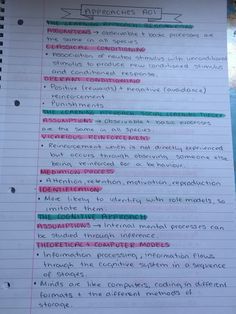 APPROACHES AO1
THE LEARNING APPROACH BEHAVIOURISM
ASSUMPTIONS → observable + basic processes are
the same in all species
CLASSICAL CONDITIONING
• Association of neutral stimulus with unconditioned
stimulus to produce new conditioned stimulus
and conditioned response.
OPERANT CONDITIONING
• Positive (rewards) + negative (avoidance)
reinforcement
• Punishments
THE LEARNING APPROACH SOCIAL LEARNING THEORY
ASSUMPTIONS → Observable + basic processes
are the same in all species
VICARIOUS REINFORCEMENT
• Reinforcement which is not directly experienced
but occurs through observing someone else
being reinforced for a behaviour.
MEDIATION PROCESS
• Attention, retention, motivation, reproduction
IDENTIFICATION
• More likely to identify with role models, so
imitate them.
THE COGNITIVE APPROACH
ASSUMPTIONS → Internal mental processes can
be studied through inference.
THEORETICAL + COMPUTER MODELS
• Information processing, information flows
through the cognitive system in a sequence
of stages.
• Minds are like computers, coding in different
formats + the different methods of
storage.